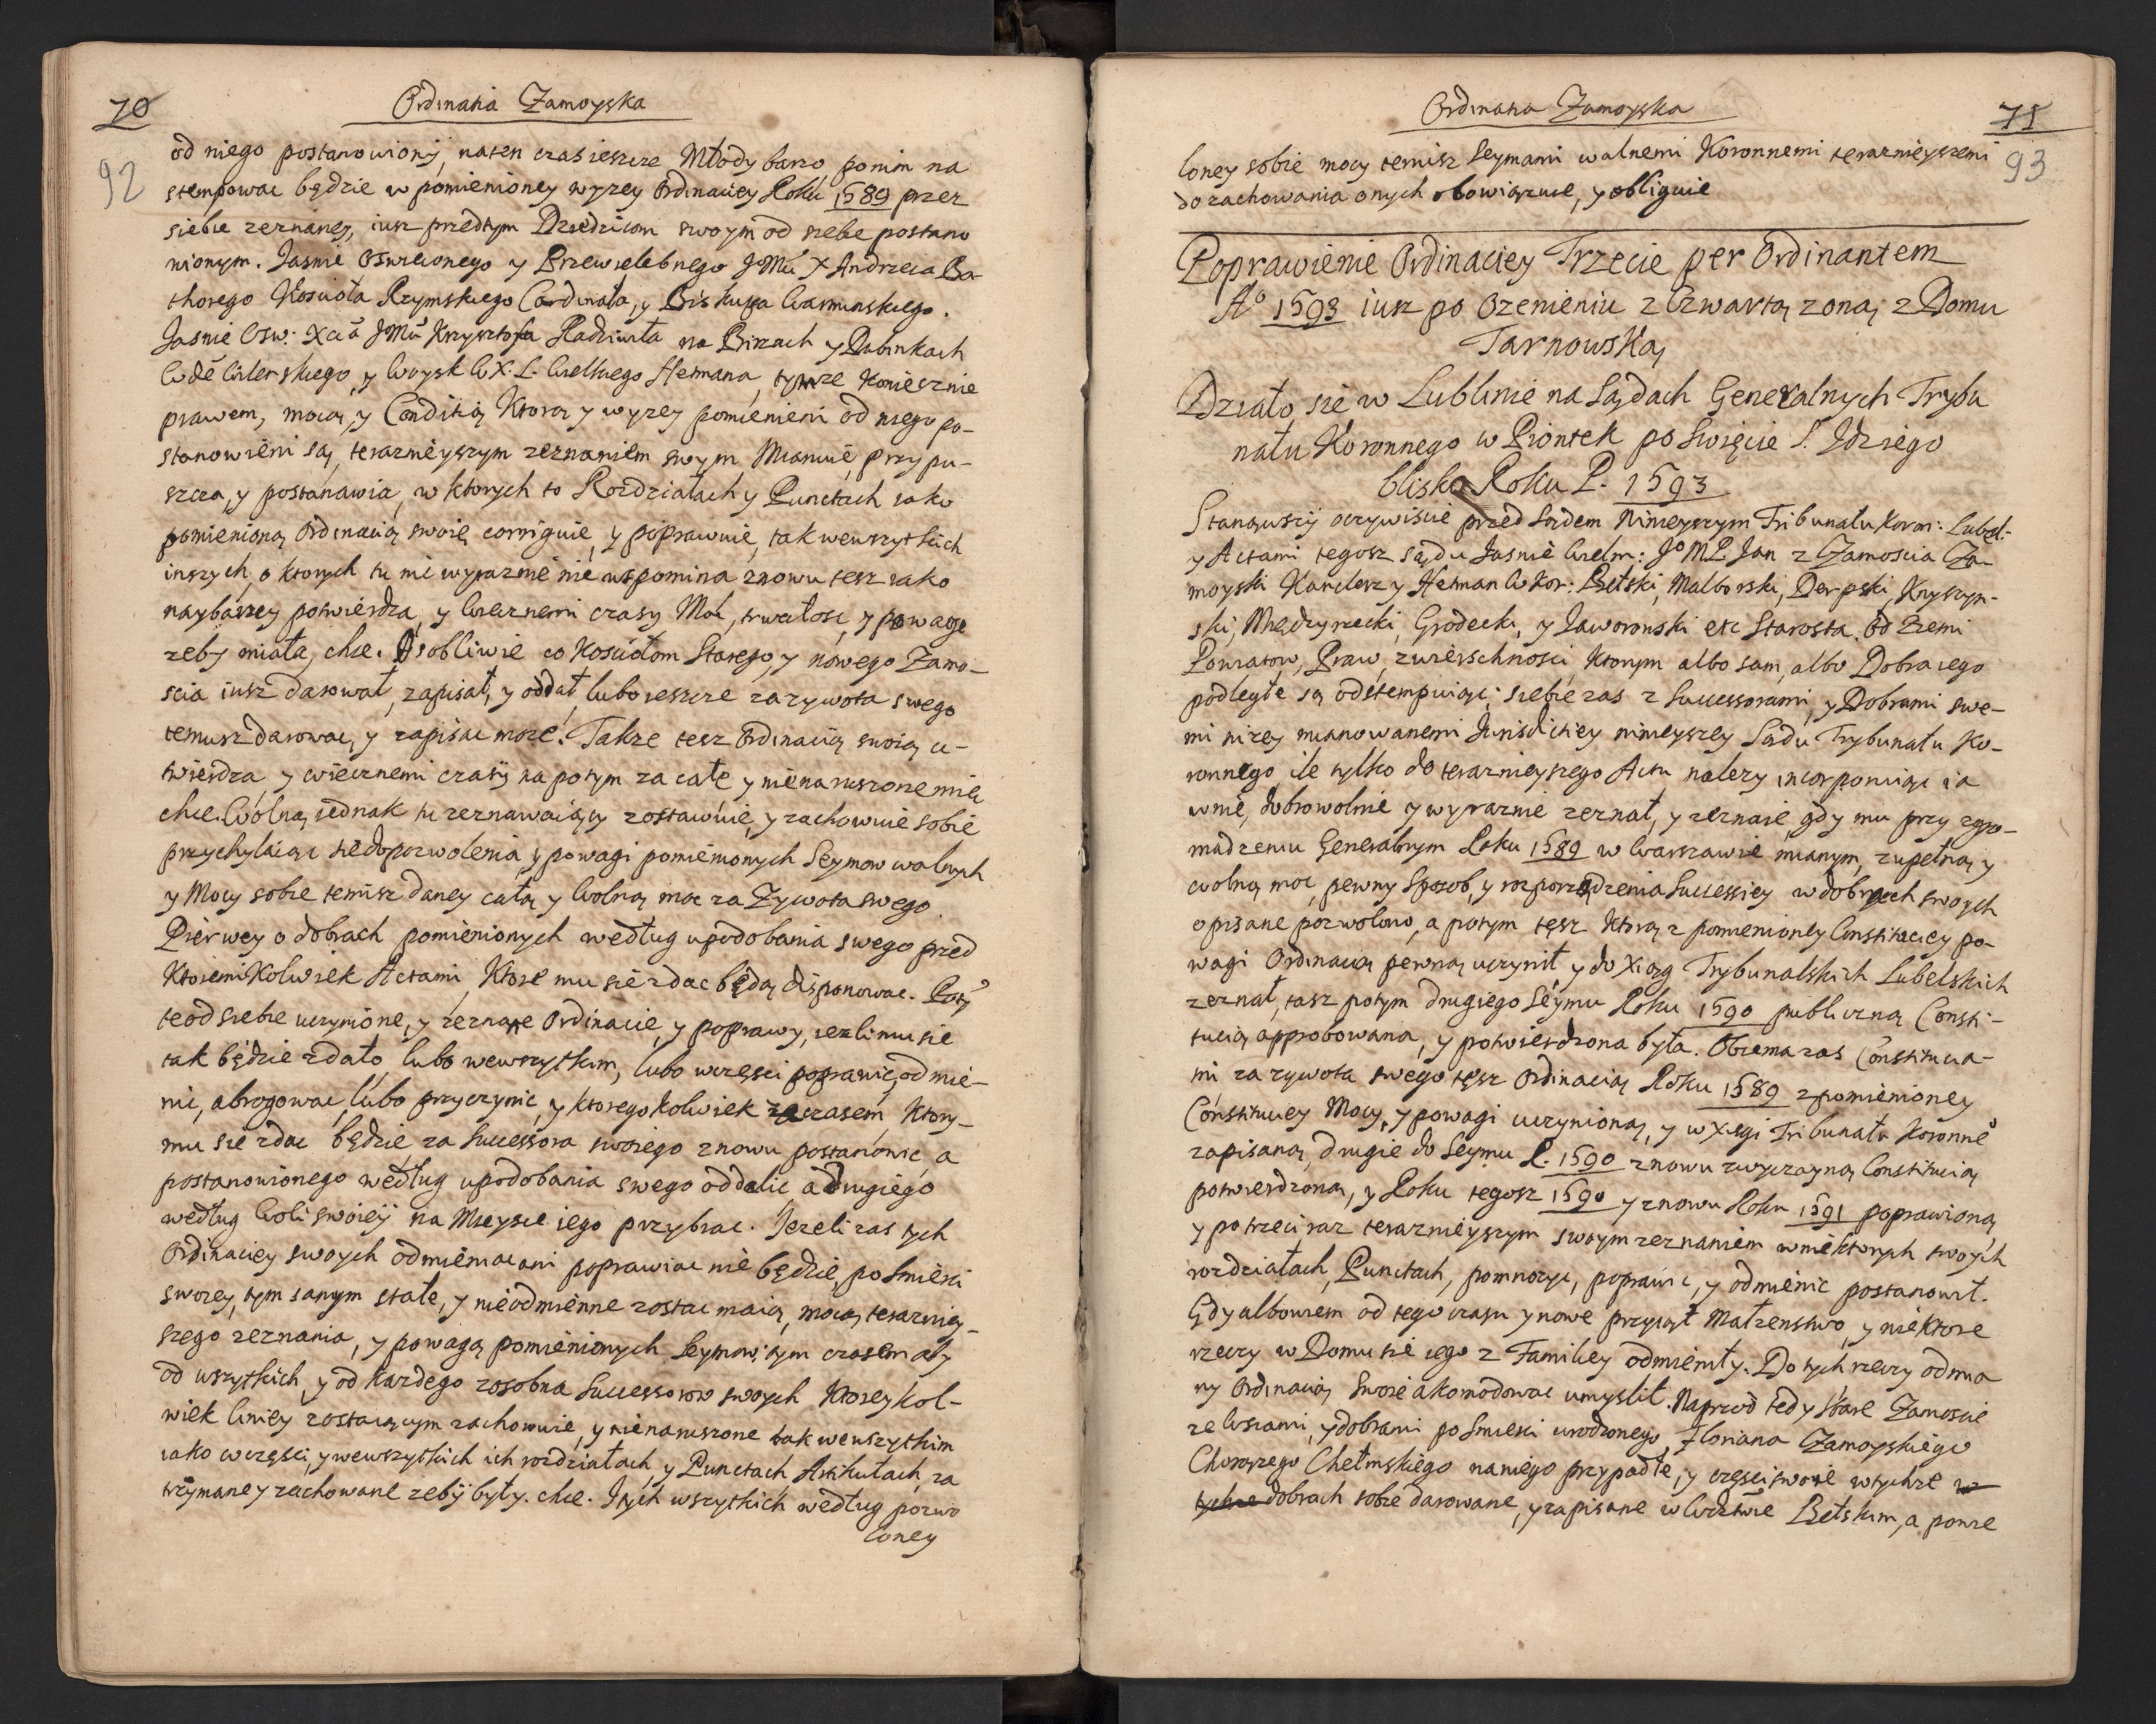 70
Ordinatia Zamoyska
92
od niego postanowiony, naten czas ieszcze Młody barzo ponim na
stempowac będzie w pomienioney wyzey Ordinaciey Roku 1589 przez
siebie zeznaney, iusz przedtym Dziedzicom swoym od siebie postano
wionym. Jasnie Oswieconego y Przewielebnego JMu X Andrzeia Ba-
thorego Kosciola Rzymskiego Cardinała, y Biskupa Warminskiego.
Jasnie Osw: Xcia JMu Krzysztofa Radziwiła na Birzach y Dubinkach
Wdē Wilenskiego, y Woysk W.X.L. Wielkiego Hetmana, tymze koniecznie
prawem, mocą, y Conditią Ktorą y wyzey pomienieni od niego po-
stanowieni są, teraznieyszym zeznaniem swym Mianuie, przypu-
szcza, y postanawia, w ktorych to Rozdziałach y Punctach iako
pomienioną Ordinacią swoię corriguie, y poprawuie, tak wewszytkich
inszych, o ktorych tu nic wyraznie nie wspomina znowu tesz iako
naybarzey potwierdza, y wiecznemi czasy Moc, trwałosc, y powagę
zeby miała, chce. Osobliwie co Kosciołom Starego, y nowego Zamo-
scia iusz darował, zapisał, y oddał, lubo ieszcze za zywota swego
temusz darowac, y zapisac moze. Takze tesz Ordinacią swoią u-
twierdza, y wiecznemi czasy na potym za całe y nienaruszone miec
chce. Wolną iednak tu zeznawaiący zostawuie, y zachowuie sobie
przychylaiąc siedopozwolenia, y powagi pomienionych Seymow walnych
y Mocy sobie temisz daney całą y Wolną moc za Zywota swego
Pierwey o dobrach pomienionych według upodobania swego przed
Ktoremi Kolwiek Actami, Ktore mu sie zdac będą disponowac. Potỹ
te od siebie uczynione, y zeznane Ordinacie, y poprawy, iezli mu sie
tak będzie zdało, lubo wewszytkim, lubo wczęsci poprawic, odmie-
nic, abrogowac, lubo przyczynic, y ktorego kolwiek zaczasem, Ktory-
mu sie zdac będzie, za Successora swoiego znowu postanowic, a
postanowionego według upodobania swego oddalic a drugiego
według Woli swoiey na Mieysce iego przybrac. Jezeli zas tych
Ordinaciey swoych odmieniac ani poprawiac nie będzie, po smierci
swoiey, tym samym stałe, y nieodmienne zostac maią, mocą teraznięy-
szego zeznania, y powagą pomienionych Seymow, tym czasem aby
od wszytkich, y od kazdego zosobna Successorow swoych Ktorey kol-
wiek liniey zostaiącym zachowuie, y nienaruszone tak wewszytkim
iako wczęsci, y wewszytkich ich rozdziałach, y Punctach, Artikułach, za
trzymane y zachowane zeby były. chce. Itych wszytkich według pozwo
loney
Ordinatia Zamoyska
71
93
loney sobie mocy temisz Seymami walnemi Koronnemi terazniéyszemi
do zachowania onych obowiązuie, y obliguie
Poprawienie Ordinaciey Trzecie per Ordinantem
A° 1593 iusz po Ozenieniu z Czwartą zoną z Domu
Tarnowską
Działo się w Lublinie na Sądach Generalnych Trybu
nału Koronnego w Piontek po Swięcie S. Idziego
blisko Roku P. 1593
Stanąwszy oczywiscie przed Sądem Ninieyszym Tribunału Koron: Lubel:
y Actami tegosz sądu Jasnie Wielm: J°MP Jan z Zamoscia Za-
moyski Kanclerz y Hetman W Kor: Bełski, Malborski, Derpski, Knyszyn-
ski, Międzyrzecki, Grodecki, y Jaworowski etc Starosta. Od Ziemi
Powiatow, Praw, zwierschnosci, Ktorym albo sam, albo Dobra iego
podległe są odstempuiąc: siebie zas z Successorami, y Dobrami swe-
mi nizey mianowanemi Jurisdictiey ninieyszey Sądu Trybunału Ko-
ronnego ile tylko do terazniéyszego Actu nalezy incorporuiąc ia
wnie, dobrowolnie y wyraznie zeznał, y zeznaie, gdy mu przy zgro-
madzeniu Generalnym Roku 1589 w Warszawie mianym, zupełną y
wolną moc, pewny Sposob, y rozporządzenia Successiey w dobrach swoych
opisane pozwolono, a potym tesz Ktorą z pomienioney Constituciey po-
wagi Ordinacią pewną uczynił, y do Xiąg Trybunalskich Lubelskich
zeznał, tasz potym drugiego Seymu Roku 1590 publiczną Consti-
tucią approbowana, y potwierdzona była. Obiema zas Constitucia-
mi za zywota swego tęsz Ordinacią Roku 1589 z pomienioney
Constituciey Mocy, y powagi uczynioną, y w Xięgi Tribunału Koronnē
zapisaną, drugie do Seymu R. 1590 znowu zwyczayną Constitucią
potwierdzoną, y Roku tegosz 1590 y znowu Roku 1591 poprawioną
y potrzeci raz terazniéyszym swoym zeznaniem wniektorych swoych
rozdziałach, Punctach, pomnozyc, poprawic, y odmienic postanowił.
Gdy albowiem od tego czasu y nowe przyiął Małzenstwo, y niektore
rzeczy w Domu sie iego z Familiey odmieniły. Do tych rzeczy odmia
ny Ordinacią swoie akomodowac umyslił. Naprzod tedy stare Zamoscie
ze Wsiami, y dobrami po smierci urodzonego Floriana Zamoyskiego
Chorązego Chełmskiego naniego przypadłe, y częsci swoie wtychze w
tychze dobrach sobie darowane, y zapisane w Wdztwie Bełskim, a powie